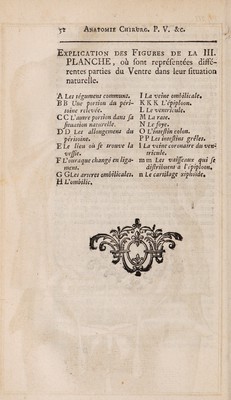 32 ANATOMIE CHIRURG. P. V. &c.
EXPLICATION DES FIGURES DE LA III.
PLANCHE, où sont représentées diffé-
rentes parties du Ventre dans leur situation
naturelle.
A Les tégumens communs.
B B Une portion du péri-
toine relevée.
C C L'autre portion dans sa
situation naturelle.
D D Les allongemens du
péritoine.
E Le lieu où se trouve la
vessie.
F L'ouraque changé en liga-
ment.
G G Les arteres ombilicales.
H L'ombilic.
I La veine ombilicale.
K K K L'épiploon.
L Le ventricule.
M La rate.
N Le foye.
O L'intestin colon.
P P Les intestins grêles.
l La veine coronaire du ven-
tricule.
m m Les vaisseaux qui se
distribuent à l'épiploon.
n Le cartilage xiphoide.